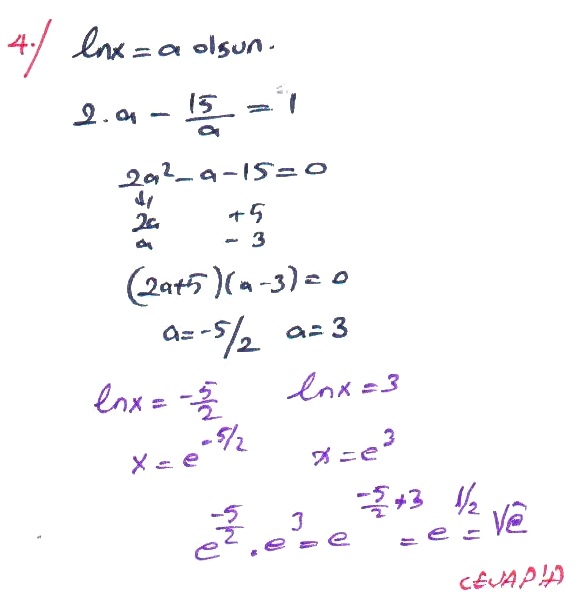 4.) lnx = a olsun.
2.a - 15/a = 1
2a² - a - 15 = 0
2a +5
a -3
(2a+5)(a-3) = 0
a = -5/2 a = 3
lnx = -5/2 lnx = 3
x = e^(-5/2) x = e³
e^(-5/2) . e³ = e^(-5/2+3) = e^(1/2) = √e